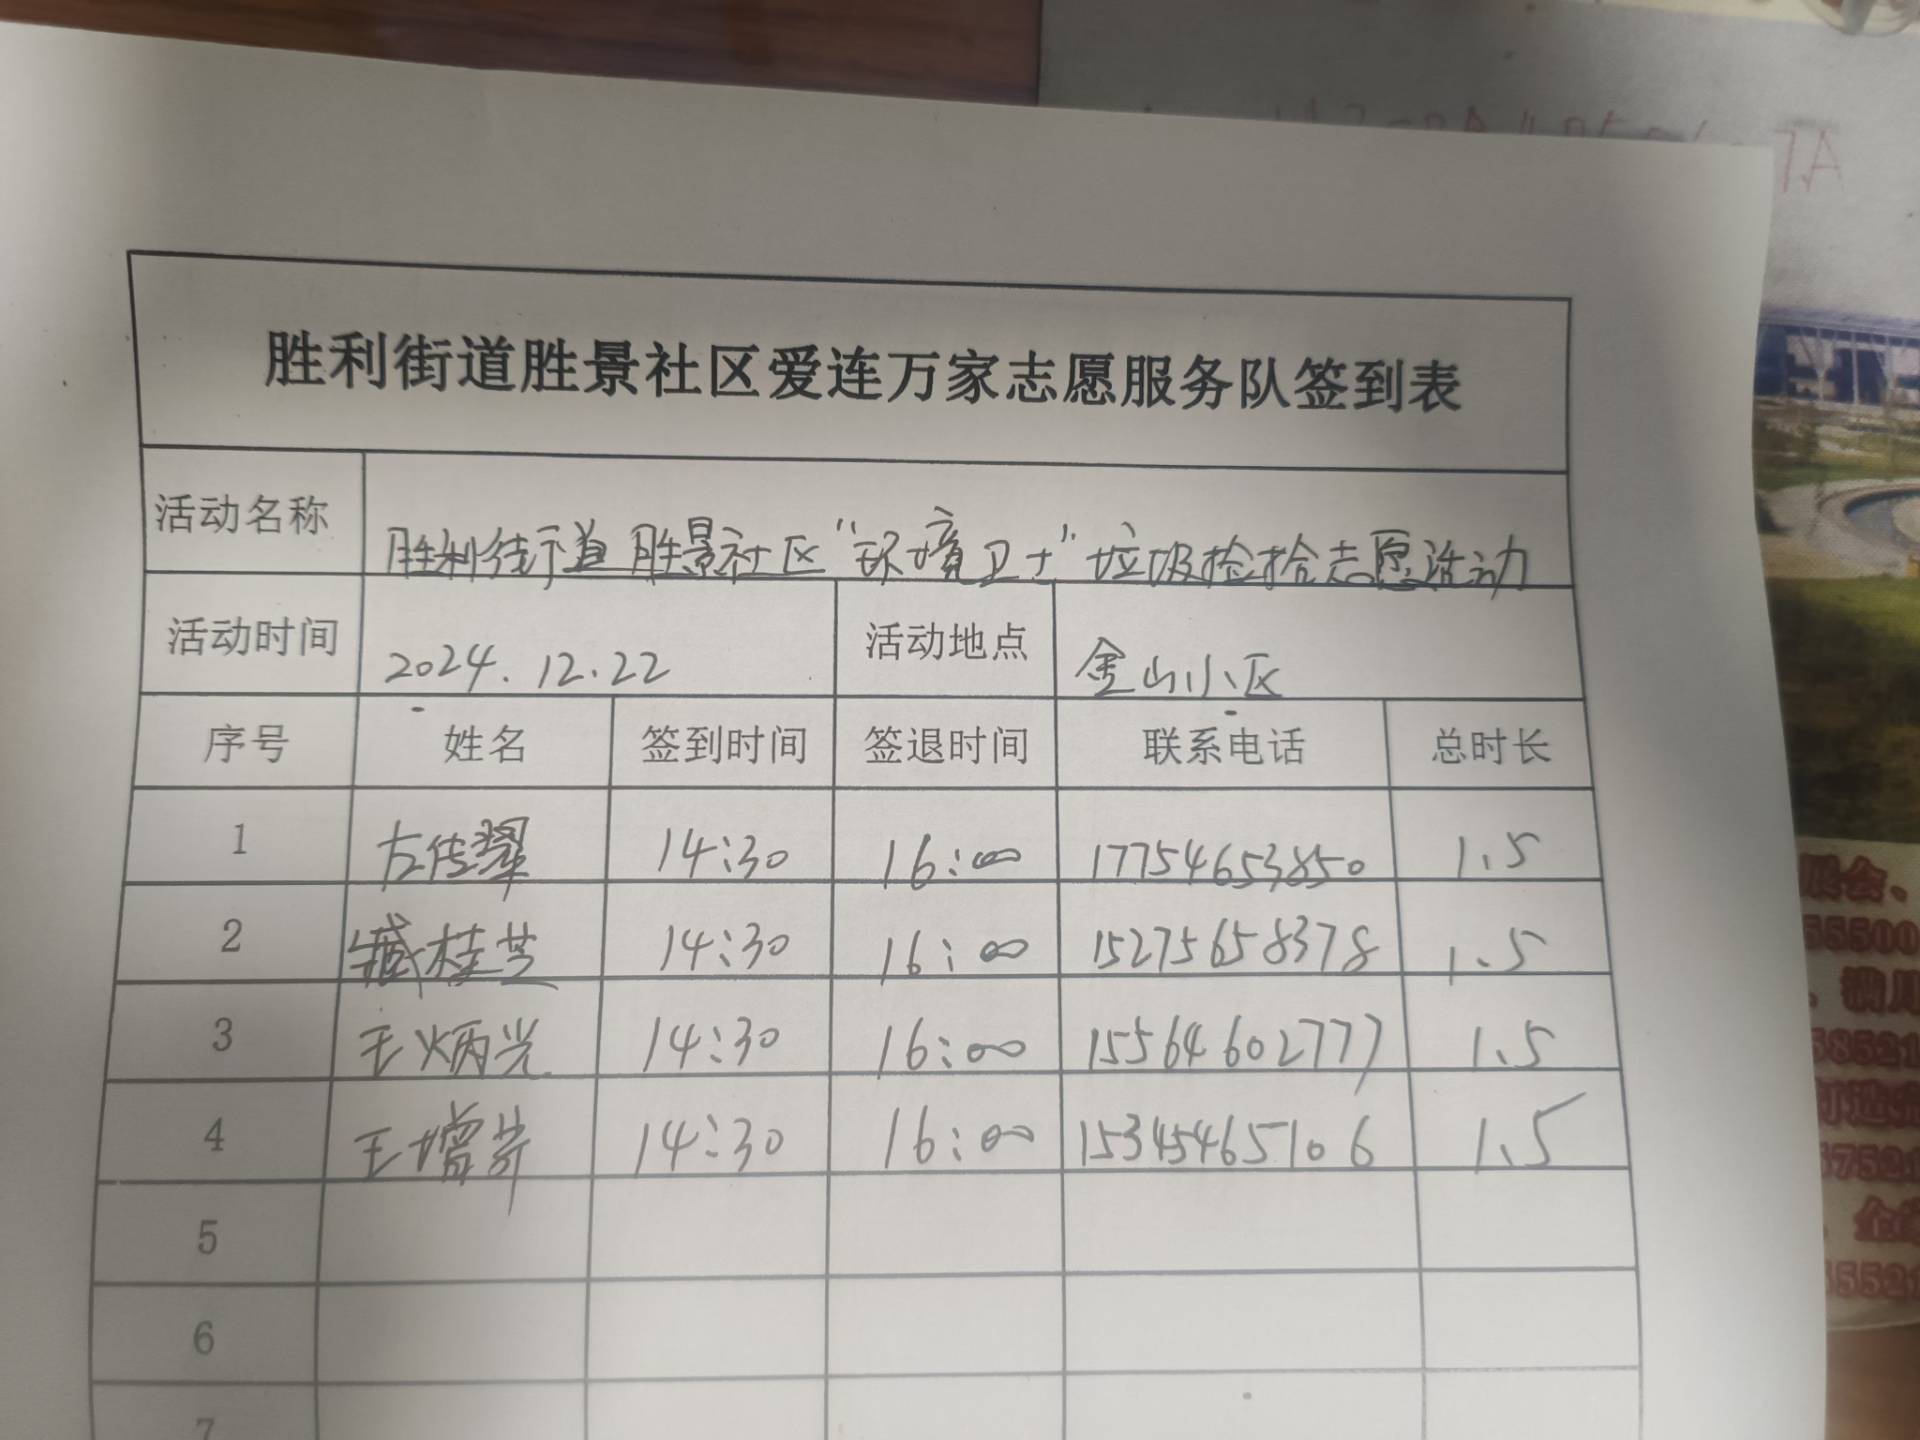 胜利街道胜景社区爱连万家志愿服务队签到表
活动名称 胜利街道胜景社区“环境卫士”垃圾捡拾志愿活动
活动时间 2024.12.22 活动地点 金山小区
序号 姓名 签到时间 签退时间 联系电话 总时长
1 左传翠 14:30 16:00 17754653850 1.5
2 臧桂芝 14:30 16:00 15275658378 1.5
3 王炳光 14:30 16:00 15564602777 1.5
4 王增芹 14:30 16:00 15345465106 1.5
5
6
7
7A
展会、
55500
、满月
58521
打造
57521
5521